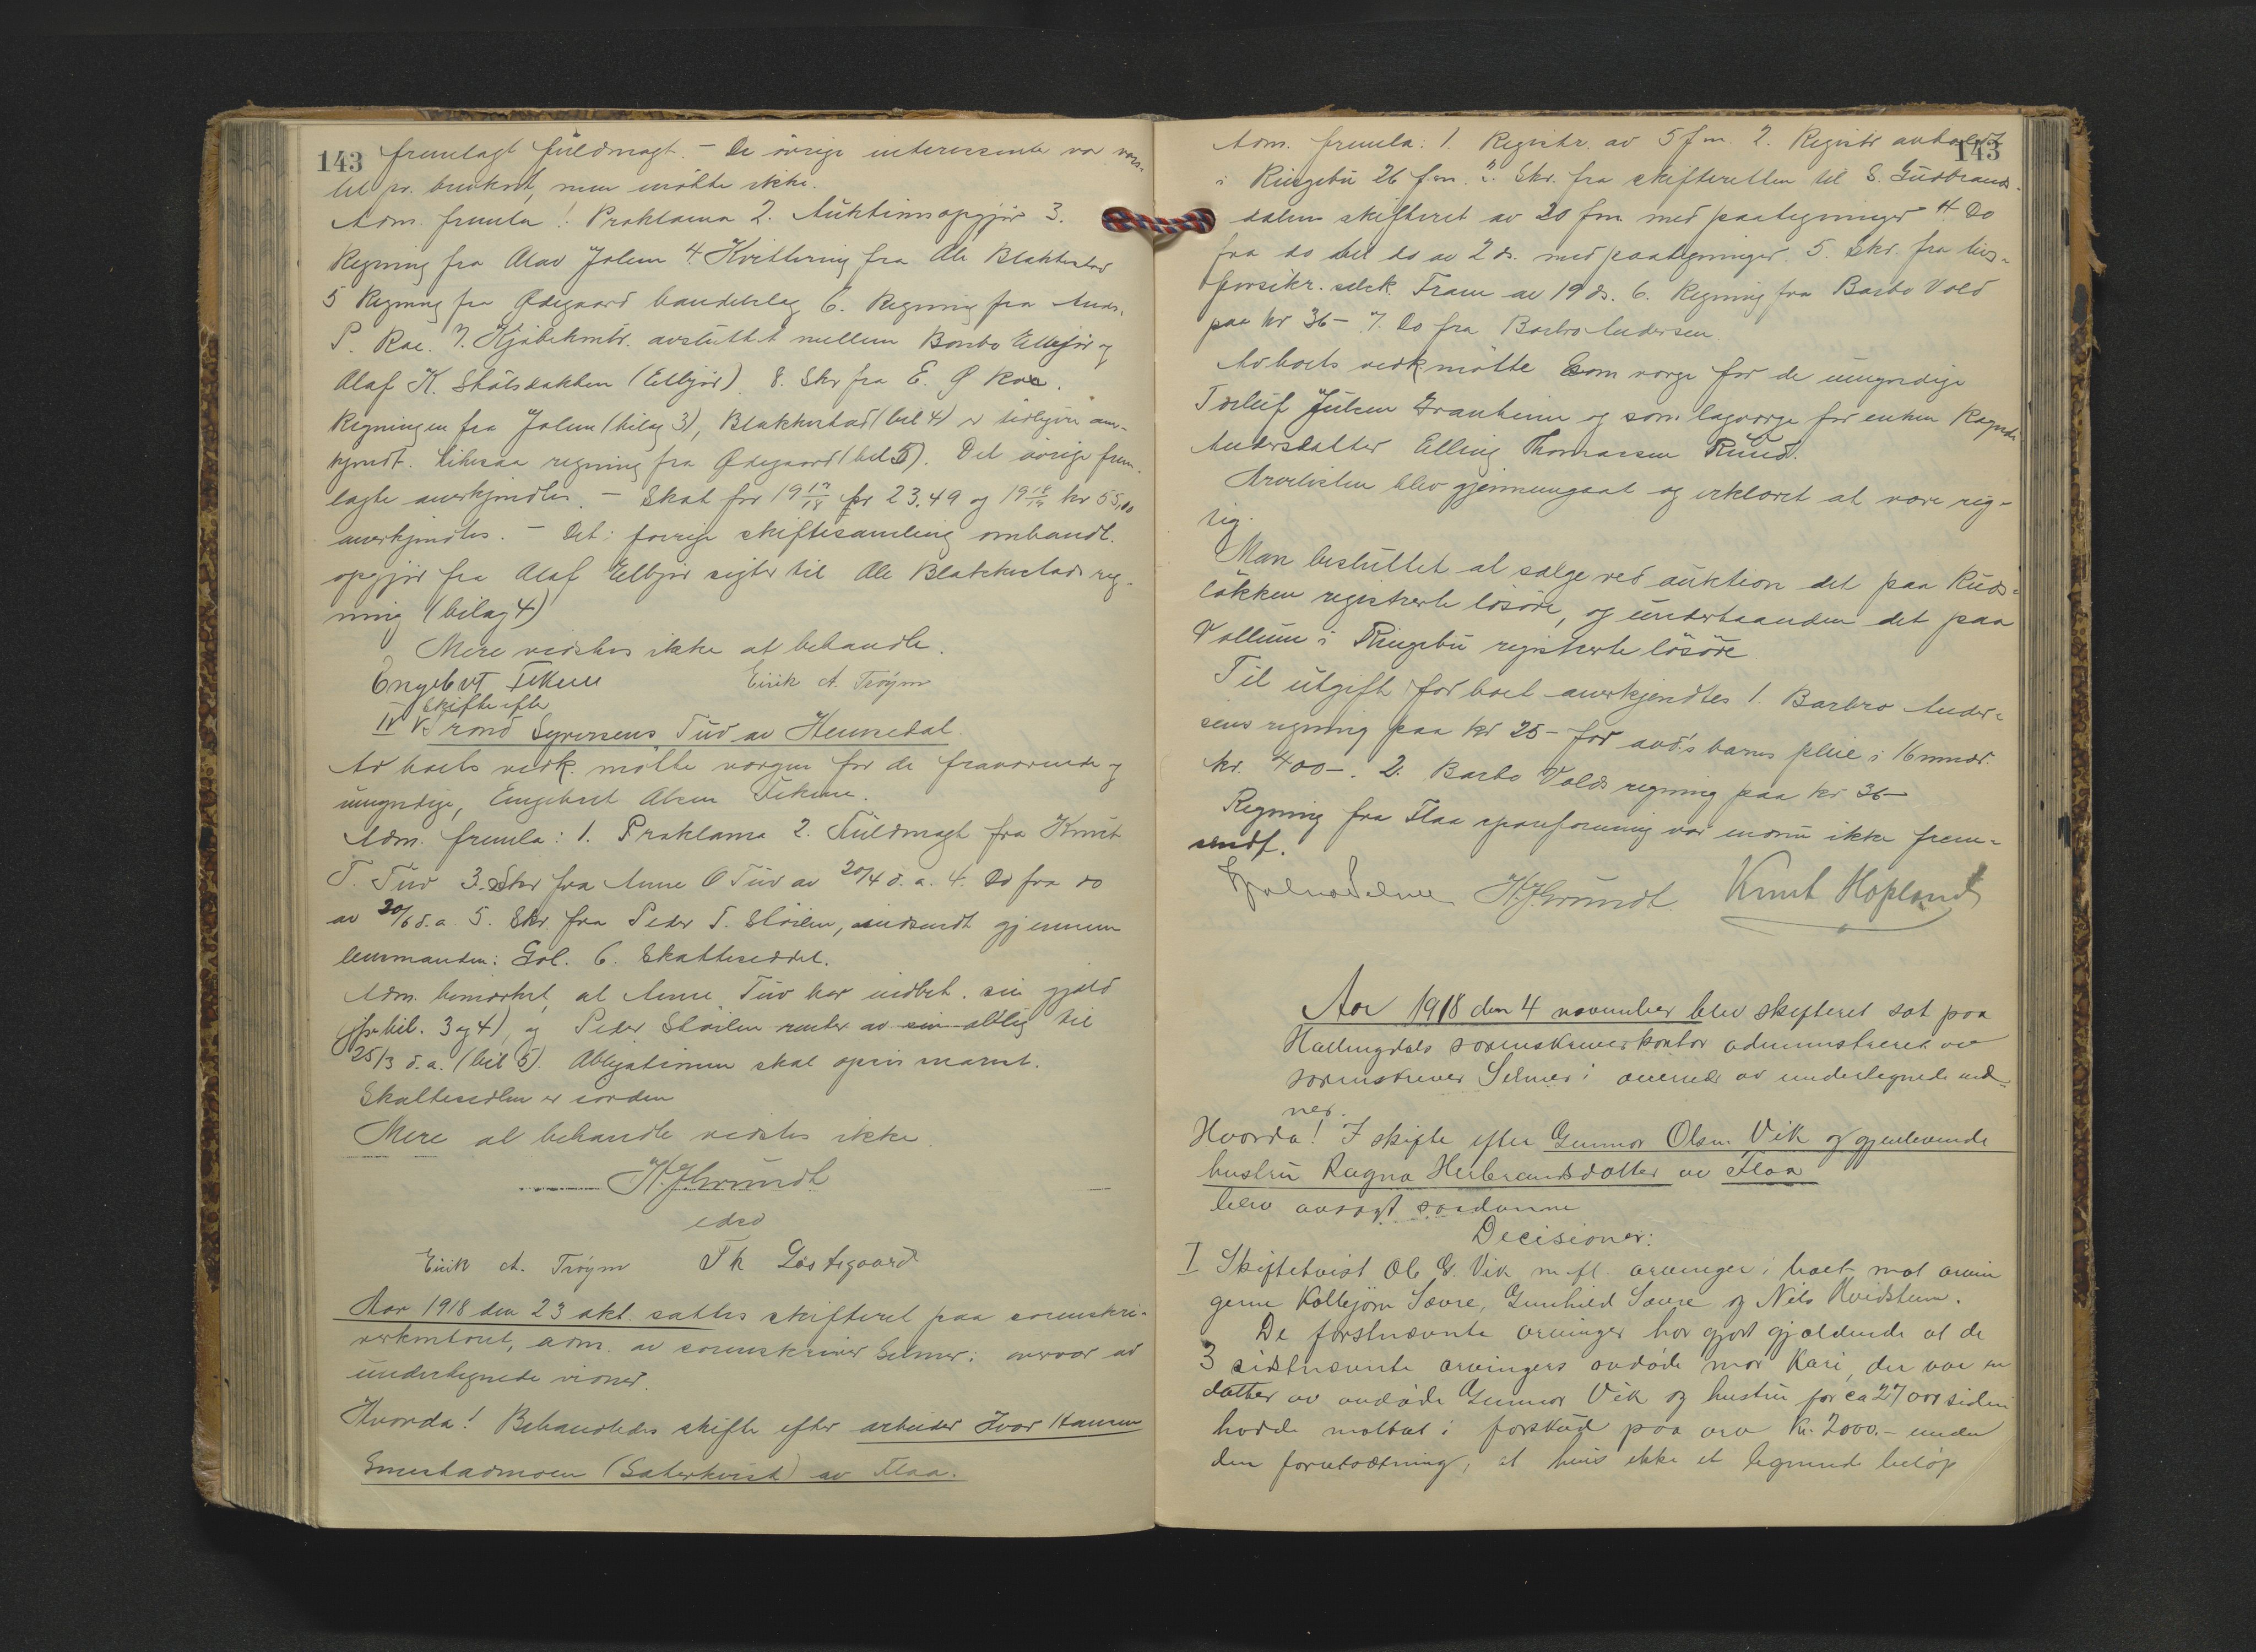 143
fremlagt fuldmagt. - De øvrige interessenter var
til pr. brevkort, men møtte ikke.
Adm. fremla: 1. Proklama 2. Auktionsopgjør 3.
Regning fra Olav Jolem 4. Kvittering fra Ole Blakkestad
5 Regning fra Ødegaard handelslag 6. Regning fra Ands.
P. Rae. 7. Kjøbekontr. avsluttet mellem Barbo Elbjør og
Olaf K. Skølsbakken (Elbjør). 8. Skr fra E. Ø Rae.
Regningen fra Jolem (bilag 3), Blakkestad (bil 4) er tidligere aner-
kjendt. Likesaa regning fra Ødegaard (bil 5). Det øvrige frem-
lagte anerkjendtes. - Skat for 19 17/18 kr 23,49 og 19 18/19 kr 55,00
anerkjendtes. - Det i forrige skiftesamling omhandl.
opgjør fra Olaf Elbjør sigter til Ole Blakkestads reg-
ning (bilag 4)
Mere vidstes ikke at behandle.
Engebret Fekene Eirik A. Trøym
Skifte efter
IV Trond Syversens Tuv av Hemsedal.
Av boets vedk. møtte vergen for de fraværende og
umyndige, Engebret Olsen Fekene.
Adm. fremla: 1. Proklama 2. Fuldmagt fra Knut
T. Tuv 3. Skr fra Anne O Tuv av 20/4 d.a. 4. Do fra do
av 20/6 d.a. 5. Skr. fra Peder T. Støilen, indsendt gjennem
lensmanden i Gol. 6. Skatteseddel.
Adm. bemerket, at Anne Tuv har indbet. sin gjæld
(jfr bil. 3 og 4), og Peder Støilen renter av sin oblig til
25/3 d.a. (bil 5). Obligationen skal opsis snarest.
Skattesedlen er iorden
Mere at behandle vidstes ikke.
H. J. Grundt
edsv
Eirik A. Trøym Th Løstegaard
Aar 1918 den 23 okt. sattes skifteret paa sorenskri-
verkontoret, adm. av sorenskriver Selmer i overvær av
undertegnede vidner.
Hvorda! Behandledes skifte efter arbeider Ivar Hansen
Smestadmoen (Sæterkvist) av Flaa.
143
Adm. fremla: 1. Registr. av 5 f.m. 2. Registr avholdt
i Ringebu 26 f.m. 3. Skr. fra skifteretten til S. Gudbrands-
dalens skifteret av 20 fm med paategninger 4. Do
fra do til do av 2 ds. med paategninger. 5. Skr. fra livs-
forsikr. selsk. Fram av 19 ds. 6. Regning fra Barbo Vold
paa kr 36- 7. Do fra Barbro Andersen
Av boets vedk møtte som verge for de umyndige
Torleif Julsen Granheim og som lagverge for enken Ragnh.
Andersdatter Elling Thomassen Ruud.
Arvelisten blev gjennemgaat og erklæret at være rig-
tig.
Man besluttet at sælge ved auktion det paa Ruds-
løkken registrerte løsøre, og underhaanden det paa
Vollum i Ringebu registrerte løsøre
Til utgift for boet anerkjendtes 1. Barbro Ander-
sens regning paa kr 25- for avd's barns pleie i 16 mndr.
kr. 400-. 2. Barbo Volds regning paa kr 36-
Regning fra Flaa sparforening var endnu ikke frem-
sendt.
Hjalmar Selmer H. J. Grundt Knut Hopland
Aar 1918 den 4 november blev skifteret sat paa
Hallingdals sorenskriverkontor administreret av
sorenskriver Selmer i overvær av undertegnede vid-
ner.
Hvorda! I skifte efter Gunnar Olsen Vik og gjenlevende
hustru Ragna Herbrandsdatter av Flaa
blev avsagt saadanne
Decisioner:
I Skiftetvist Ole G. Vik m. fl. arvinger i boet mot arvin
gerne Kolbjørn Sævre, Gunhild Sævre og Nils Hvidsteen.
De førstnævnte arvinger har gjort gjældende at de
3 sidstnævnte arvingers avdøde mor Kari, der var en
datter av avdøde Gunnar Vik og hustru for ca 27 aar siden
hadde mottat i forskud paa arv kr. 2000.- under
den forutsætning, at hvis ikke et lignende beløp